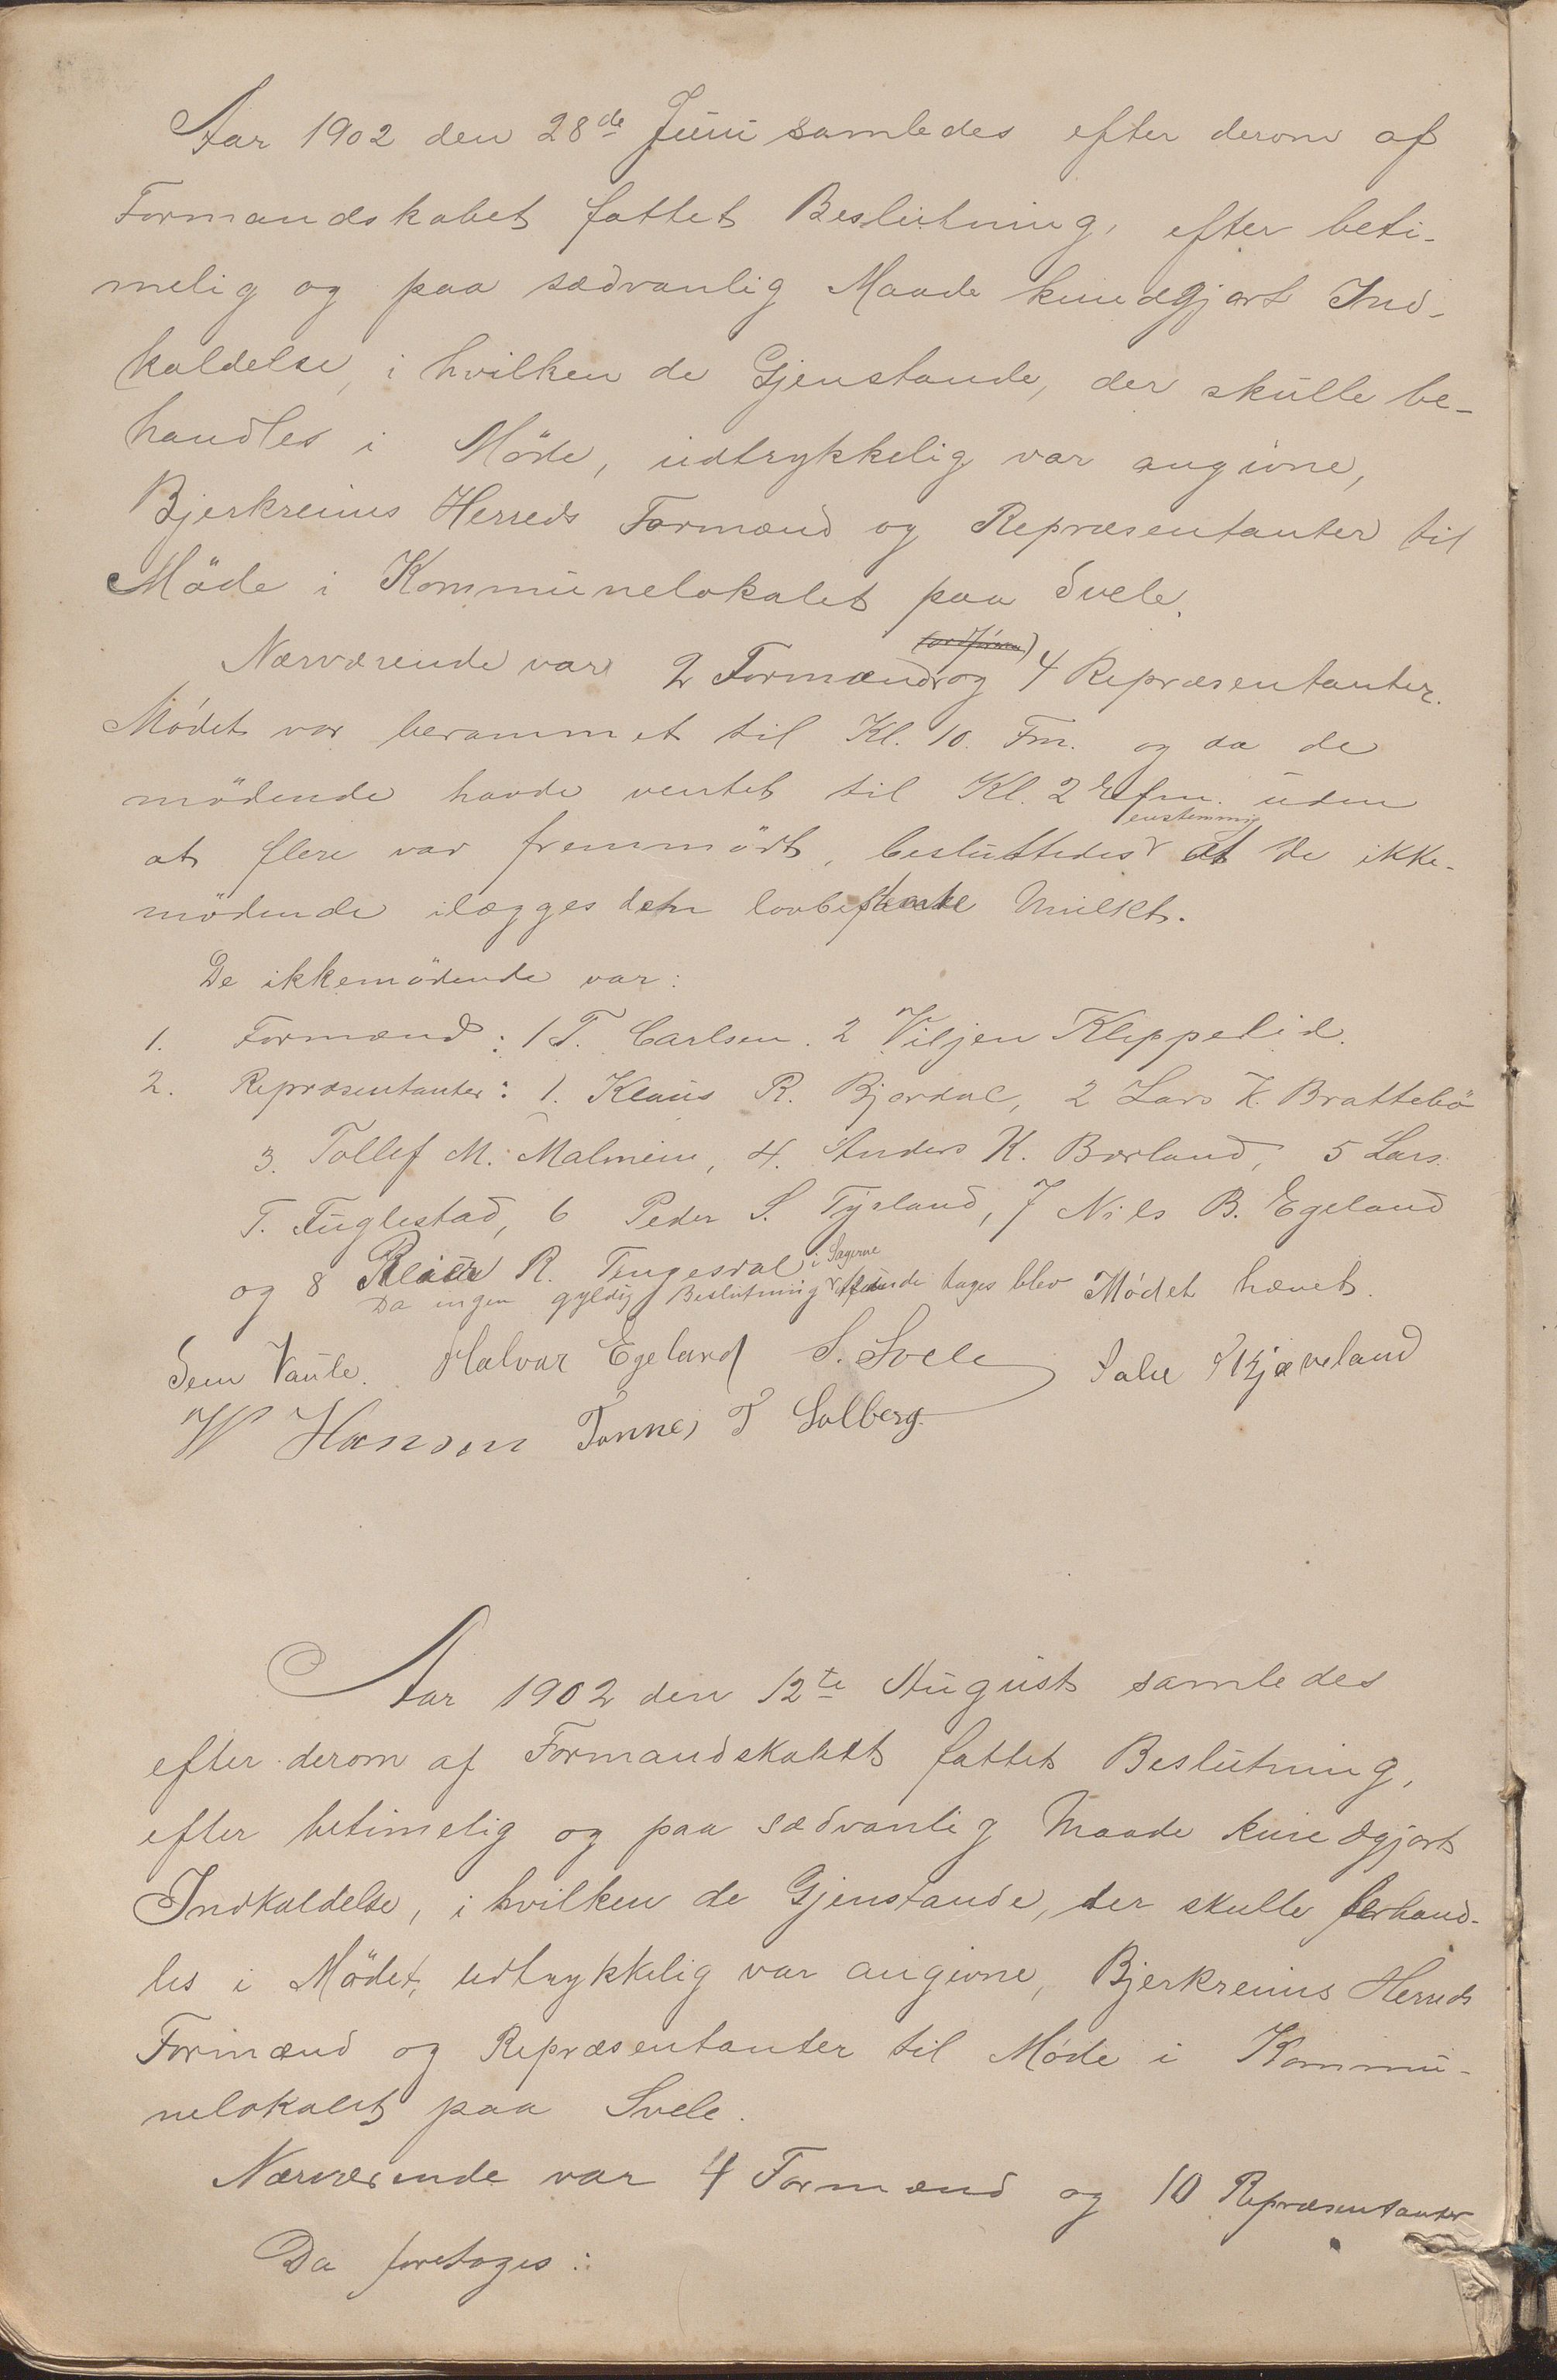 Aar 1902 den 28de Juni samledes efter derom af
Formandskabet fattet Beslutning, efter beti-
melig og paa sædvanlig Maade kundgjort Ind-
kaldelse, i hvilken de Gjenstande, der skulle be-
handles i Möde, udtrykkelig var angivne,
Bjerkreims Herreds Formænd og Repræsentanter til
Möde i Kommunelokalet paa Svele.
Nærværende var 2 Formænd og 4 Repræsentanter.
Mödet var berammet til Kl. 10. Fm. og da de
mödende havde ventet til Kl. 2 Efm. uden
at flere var fremmödt, besluttedes enstemmig at de ikke-
mödende ilægges den lovbestemte Mulkt.
De ikkemödende var:
1. Formænd: 1 T. Carlsen. 2 Viljen Kleppelid.
2. Repræsentanter: 1. Klaus R. Bjordal, 2 Lars K. Brattebö
3. Tollef M. Malmein, 4. Anders K. Borland, 5 Lars
T. Fuglestad, 6 Peder S. Tysland, 7 Nils B. Egeland
og 8 R. Tengesdal
Da ingen gyldig Beslutning i Sagerne kunde tages blev Mödet hævet.
Sem Vaule. Halvar Egeland S. Svele Salve Skjæveland
W Hansen Tønnes T Solberg.
Aar 1902 den 12te August samledes
efter derom af Formandskabet fattet Beslutning,
efter betimelig og paa sædvanlig Maade kundgjort
Indkaldelse, i hvilken de Gjenstande, der skulle forhand-
les i Mödet, udtrykkelig var angivne, Bjerkreims Herreds
Formænd og Repræsentanter til Möde i Kommu-
nelokalet paa Svele.
Nærværende var 4 Formænd og 10 Repræsentanter
Da foretoges: